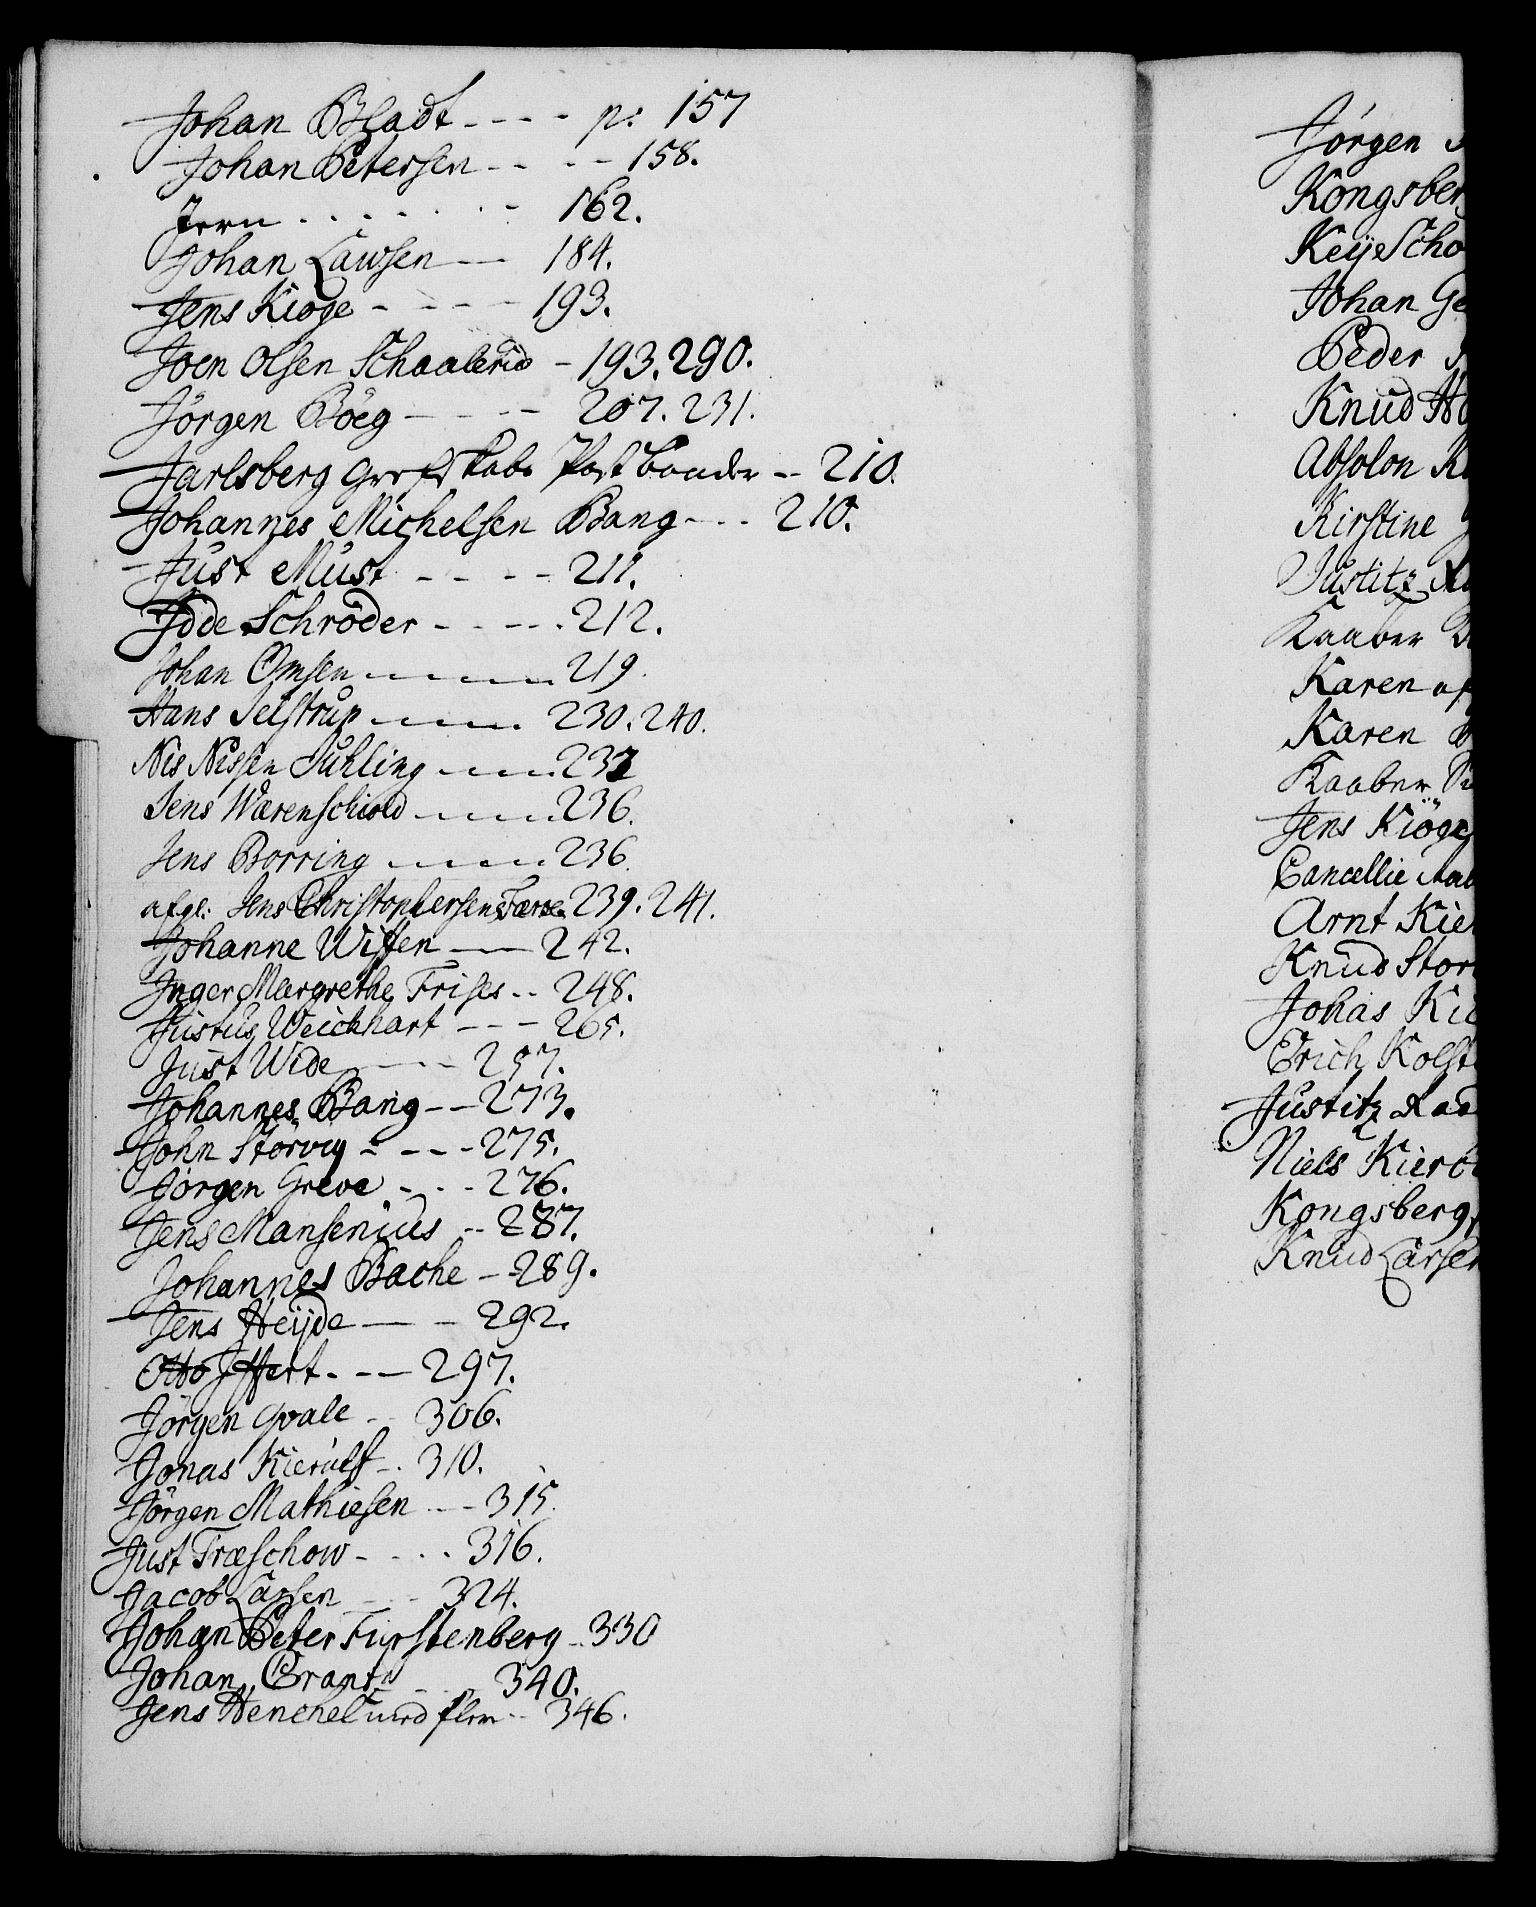 Johan Bladt - - - - p: 157
Johan Petersen - - - - 158.
Jern - - - - - - - 162.
Johan Lawsen - - 184.
Jens Kiøge - - - - 193.
Joen Olsen Schaalerud - 193. 290.
Jörgen Böeg - - - - 207. 231.
Jarlsberg Grefskabs Post bønder - - 210.
Johannes Michelsen Bang - - - 210.
Just Must - - - - 211.
Idde Schröder - - - - 212.
Johan Omsen - - - - 219.
Hans Jelstrup - - - - 230. 240.
Nis Nissen Juhling - - - - 233
Jens Wærenschiold - - - - 236.
Jens Borring - - - - 236.
afgl: Jens Christophersens Færse 239. 241.
Johanne Wissen - - 242.
Inger Margrethe Frises - - 248.
Justus Weichhart - - - 265.
Just Wide - - - 257.
Johannes Bang - - 273.
John Störvig - - - - 275.
Jørgen Greve - - - 276.
Jens Mansenius - - 287.
Johannes Bache - 289.
Jens Heÿde - - 292.
Otto Iffert - - - 297.
Jörgen Qvale - - 306.
Jonas Kierulf - - 310.
Jörgen Mathiesen - - - 315.
Just Træschow - - - - 316.
Jacob Larsen - - - 324.
Johan Peter Furstenberg - - 330
Johan Grant - - - 340.
Jens Henchel med flere - - 346.
Jörgen
Kongsber
Keÿe Scho
Johan Ge
Peder
Knud Ho
Absolon
Kirstine
Justitz
Kaaber
Karen af
Karen
Kaaber
Jens Kiöge
Cancellie
Arnt Kier
Knud Stor
Johas Ki
Erich Kolst
Justitz Raad
Niels Kier
Kongsberg
Knud Larsen